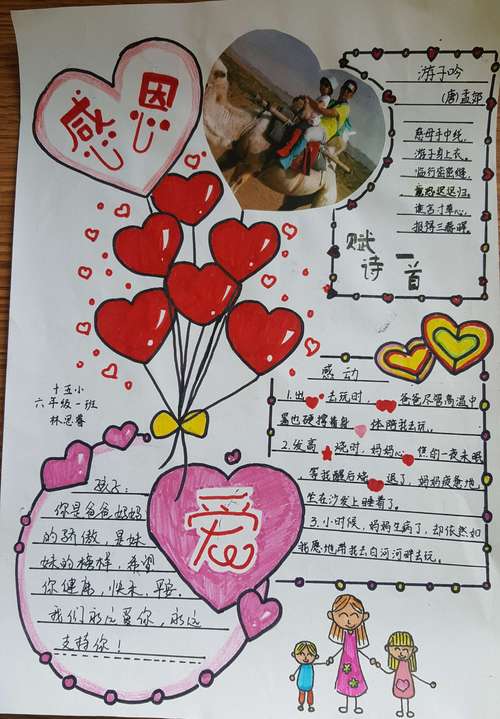 感恩
游子吟
(唐)孟郊
慈母手中线,
游子身上衣。
临行密密缝,
意恐迟迟归。
谁言寸草心,
报得三春晖。
赋诗一首
感动
1.出去玩时,爸爸尽管高温中
暑也硬撑着身体陪我去玩。
2.发高烧时,妈妈心焦的一夜未眠
等我醒后烧退了,妈妈疲惫地
坐在沙发上睡着了。
3.小时候,妈妈生病了,却依然如
我愿地带我去白河河畔去玩。
十五小
六年级一班
林思睿
爱
孩子:
你是爸爸妈妈
的骄傲,是妹
妹的榜样,希望
你健康,快乐,平安.
我们永远爱你,永远
支持你!